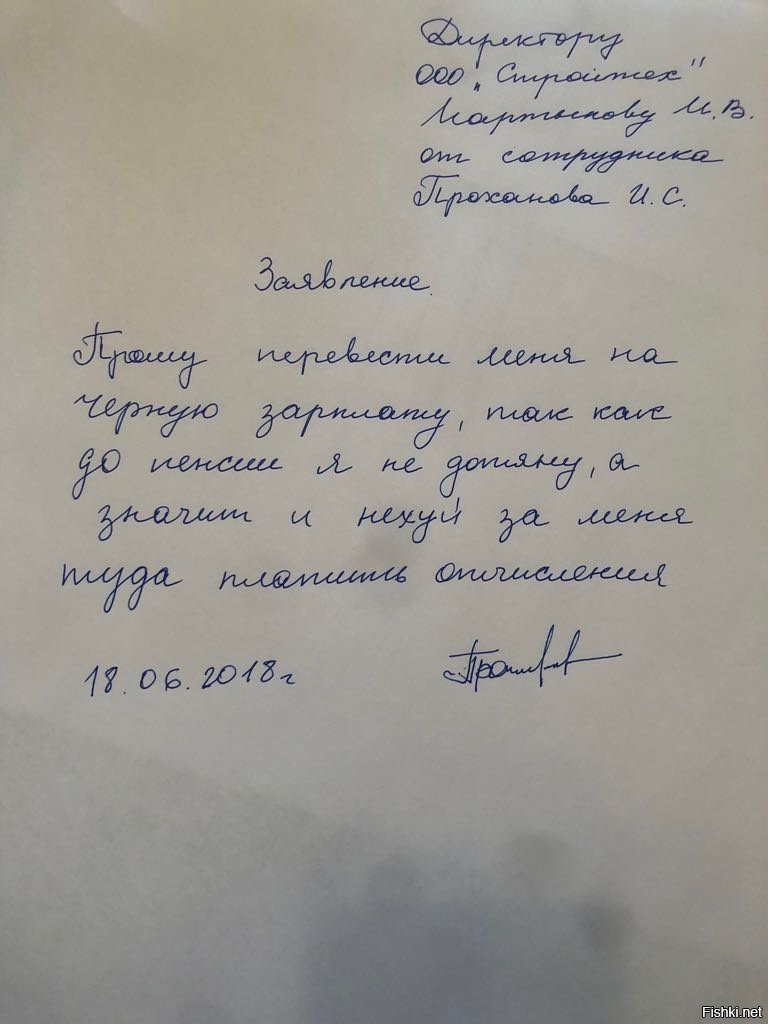 Директору
ООО „Стройтех"
Мартынову И.В.
от сотрудника
Проханова И.С.
Заявление.
Прошу перевести меня на
черную зарплату, так как
до пенсии я не дотяну, а
значит и нехуй за меня
туда платить отчисления
18.06.2018г
Fishki.net